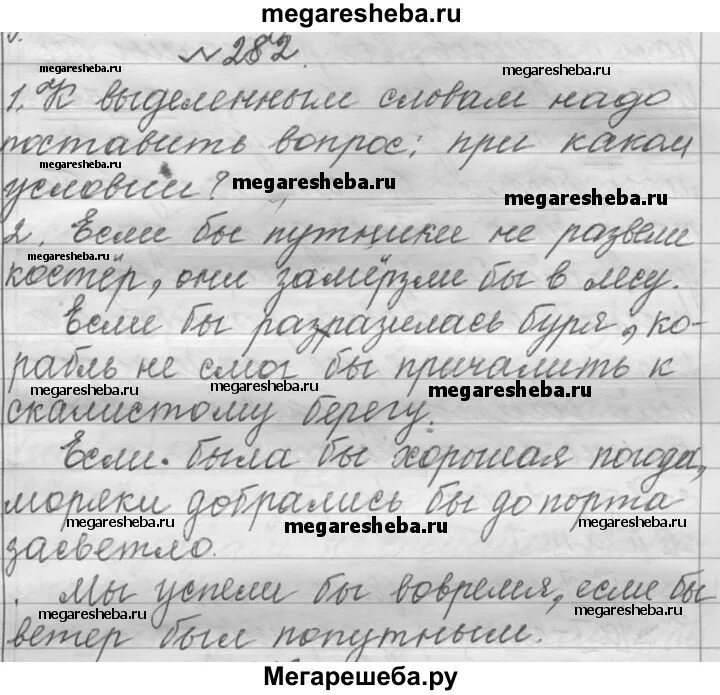 megaresheba.ru
№ 282.
megaresheba.ru megaresheba.ru
1. К выделенным словам надо
поставить вопрос: при каком
megaresheba.ru
условии? megaresheba.ru megaresheba.ru
2. Если бы путники не развели
megaresheba.ru
костёр, они замёрзли бы в лесу.
Если бы разразилась буря, ко-
рабль не смог бы причалить к
megaresheba.ru megaresheba.ru megaresheba.ru
скалистому берегу.
Если была бы хорошая погода,
моряки добрались бы до порта
megaresheba.ru megaresheba.ru megaresheba.ru
засветло.
Мы успели бы вовремя, если бы
megaresheba.ru megaresheba.ru megaresheba.ru
ветер был попутным.
Мегарешеба.ру